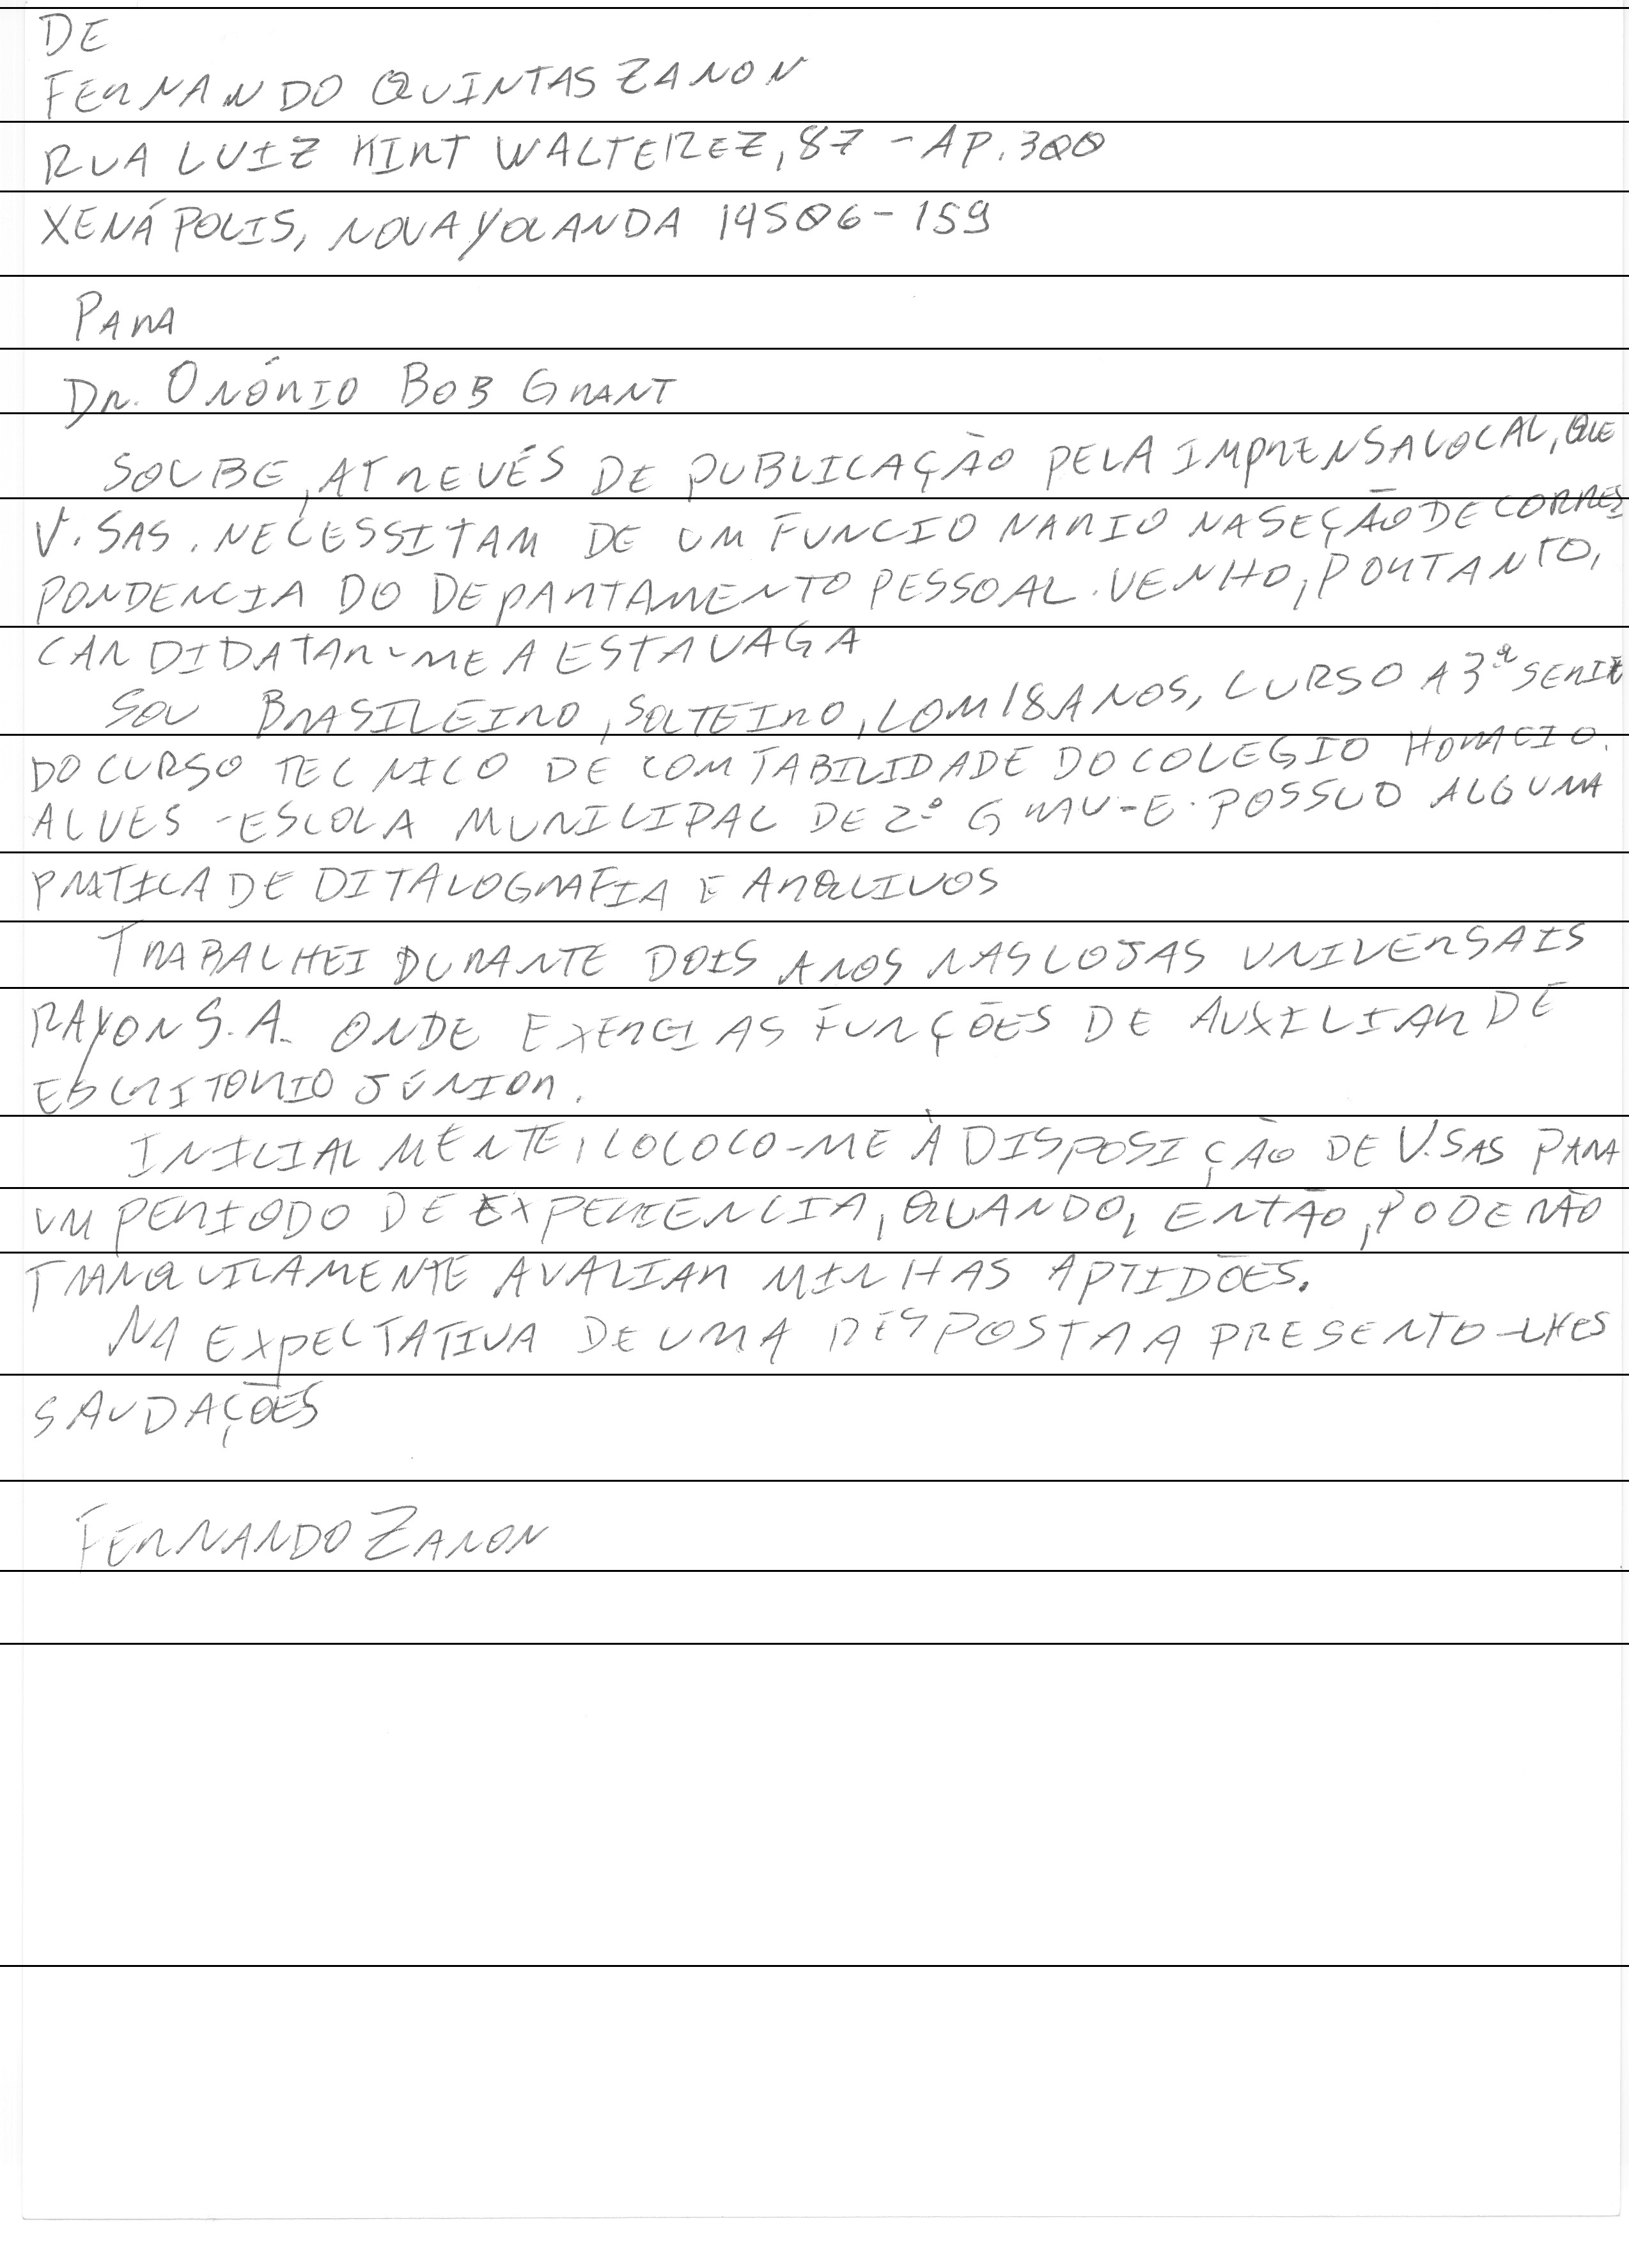 DE
FERNANDO QUINTAS ZANON
RUA LUIZ KINT WALTEREZ, 87 - AP. 300
XENÁPOLIS, NOVA YOLANDA 14506-159
PARA
DR. ONÓRIO BOB GRANT
SOUBE, ATREVÉS DE PUBLICAÇÃO PELA IMPRENSA LOCAL, QUE
V. SAS. NECESSITAM DE UM FUNCIONARIO NA SEÇÃO DE CORRES
PONDENCIA DO DEPARTAMENTO PESSOAL. VENHO, PORTANTO,
CANDIDATAR-ME A ESTA VAGA
SOU BRASILEIRO, SOLTEIRO, COM 18 ANOS, CURSO A 3ª SERIE
DO CURSO TECNICO DE COMTABILIDADE DO COLEGIO HORACIO.
ALVES - ESCOLA MUNICIPAL DE 2º GRAU - E. POSSUO ALGUMA
PRATICA DE DITALOGRAFIA E ARQUIVOS
TRABALHEI DURANTE DOIS ANOS NAS LOJAS UNIVERSAIS
RAYON S.A. ONDE EXERCI AS FUNÇÕES DE AUXILIAR DE
ESCRITORIO JÚNIOR.
INICIALMENTE, COLOCO-ME À DISPOSIÇÃO DE V.SAS PARA
UM PERIODO DE EXPERIENCIA, QUANDO, ENTÃO, PODERÃO
TRANQUILAMENTE AVALIAR MINHAS APTIDÕES.
NA EXPECTATIVA DE UMA RESPOSTA APRESENTO-LHES
SAUDAÇÕES
FERNANDO ZANON